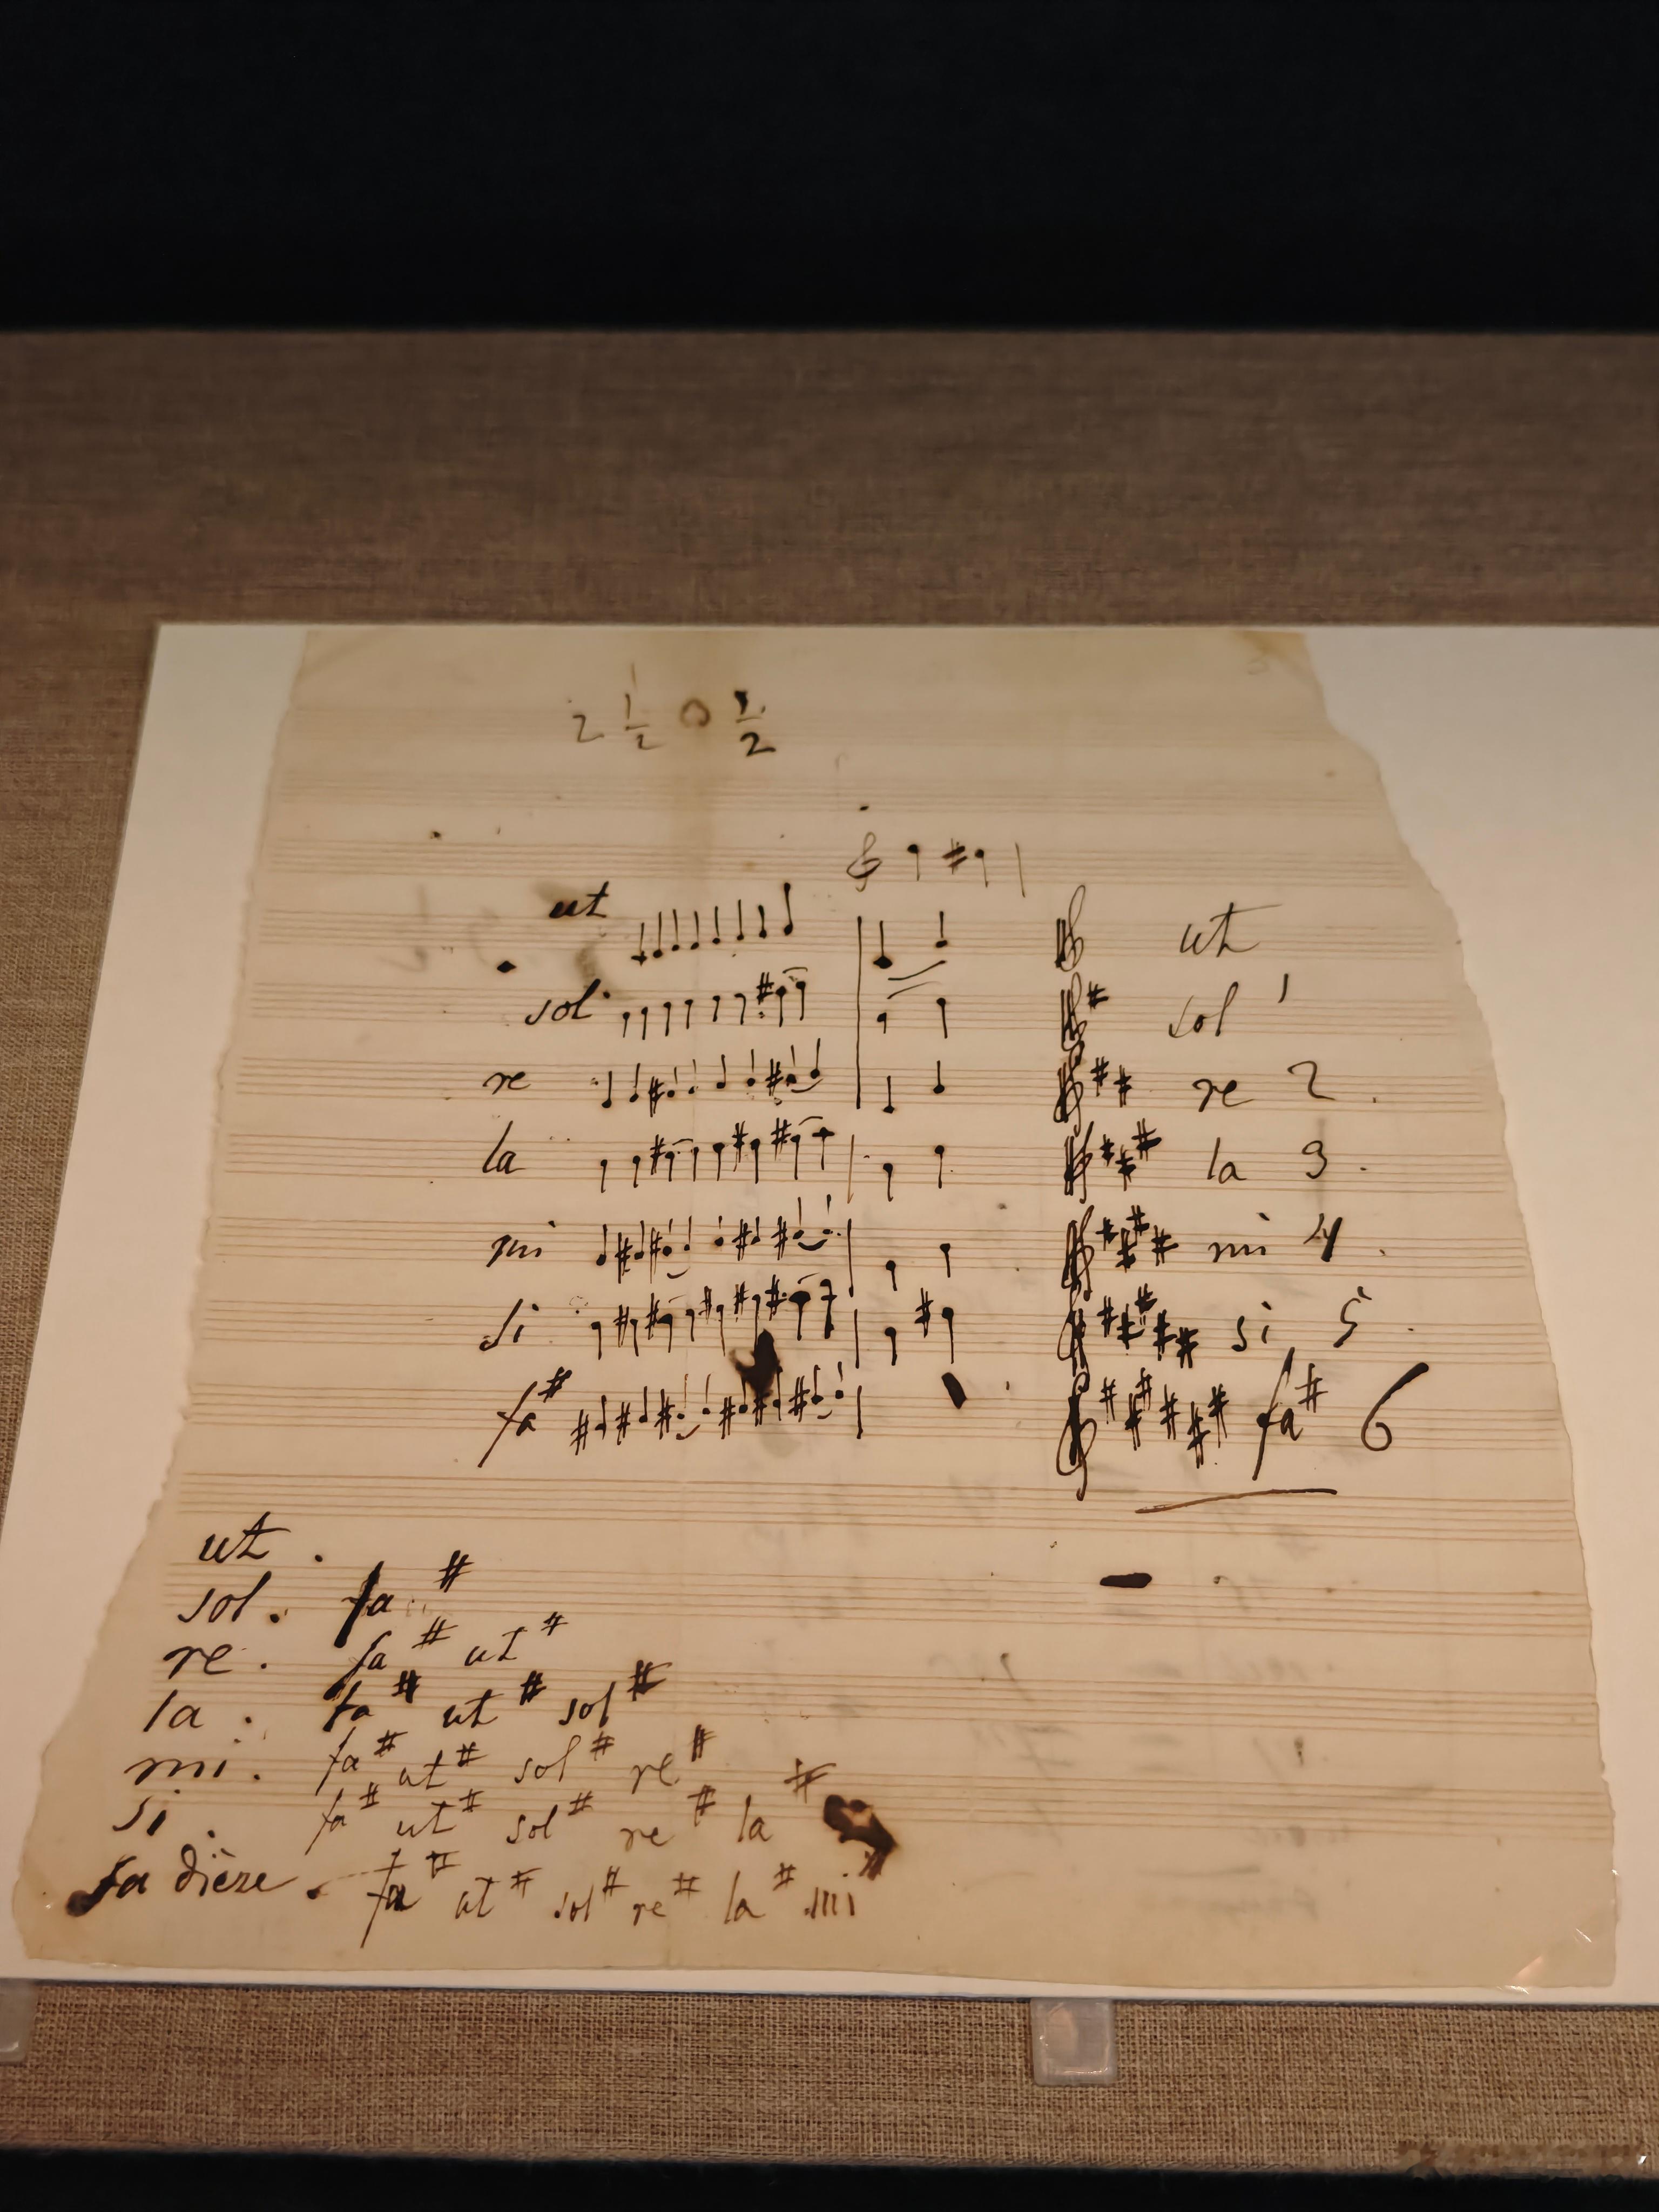 2 1/2 0 1/2
ut ut
sol # # sol 1
re # # # # re 2.
la # # # # # # la 3.
mi # # # # # # # # mi 4.
si # # # # # # # # # # # si 5.
fa# # # # # # # # # # # # # fa# 6
ut.
sol. fa#
re. fa# ut#
la. fa# ut# sol#
mi. fa# ut# sol# re#
si. fa# ut# sol# re# la#
fa dièze. fa# ut# sol# re# la# mi#